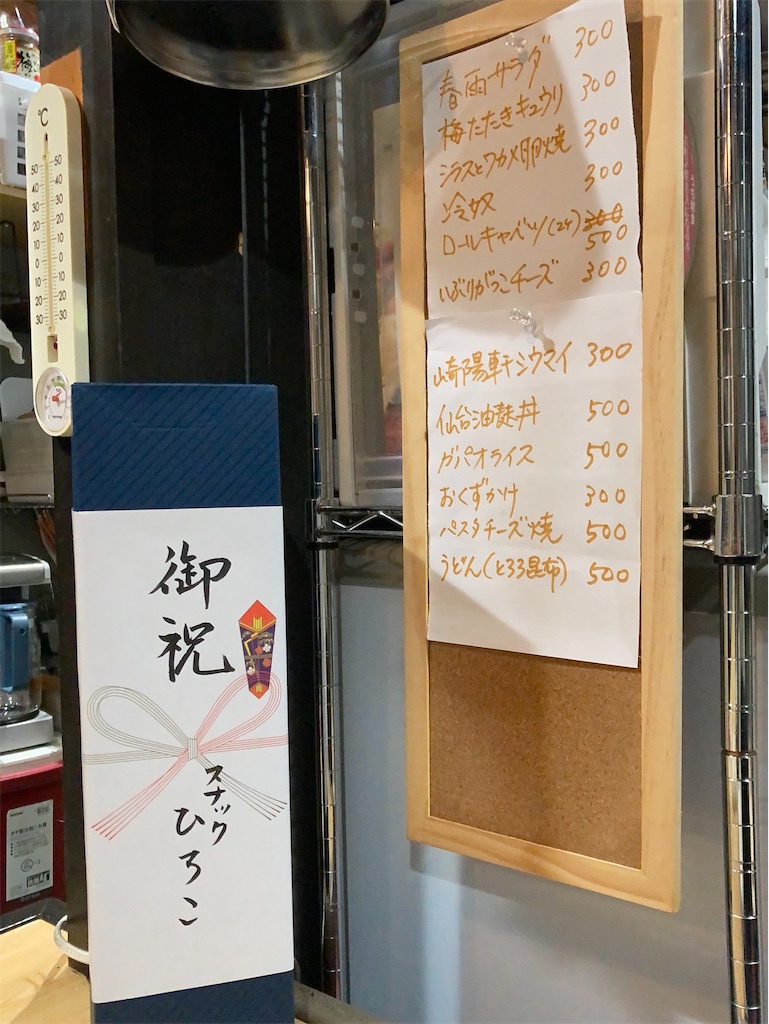 春雨サラダ 300
梅たたきキュウリ 300
シラスとワカメ卵焼 300
冷奴 300
ロールキャベツ(2ケ) 300 500
いぶりがっこチーズ 300
崎陽軒シウマイ 300
仙台油麩丼 500
ガパオライス 500
おくずかけ 300
パスタチーズ焼 500
うどん(とろろ昆布) 500
御祝
スナック
ひろこ
℃
50 50
40 40
30 30
20 20
10 10
0 0
10 10
20 20
30 30